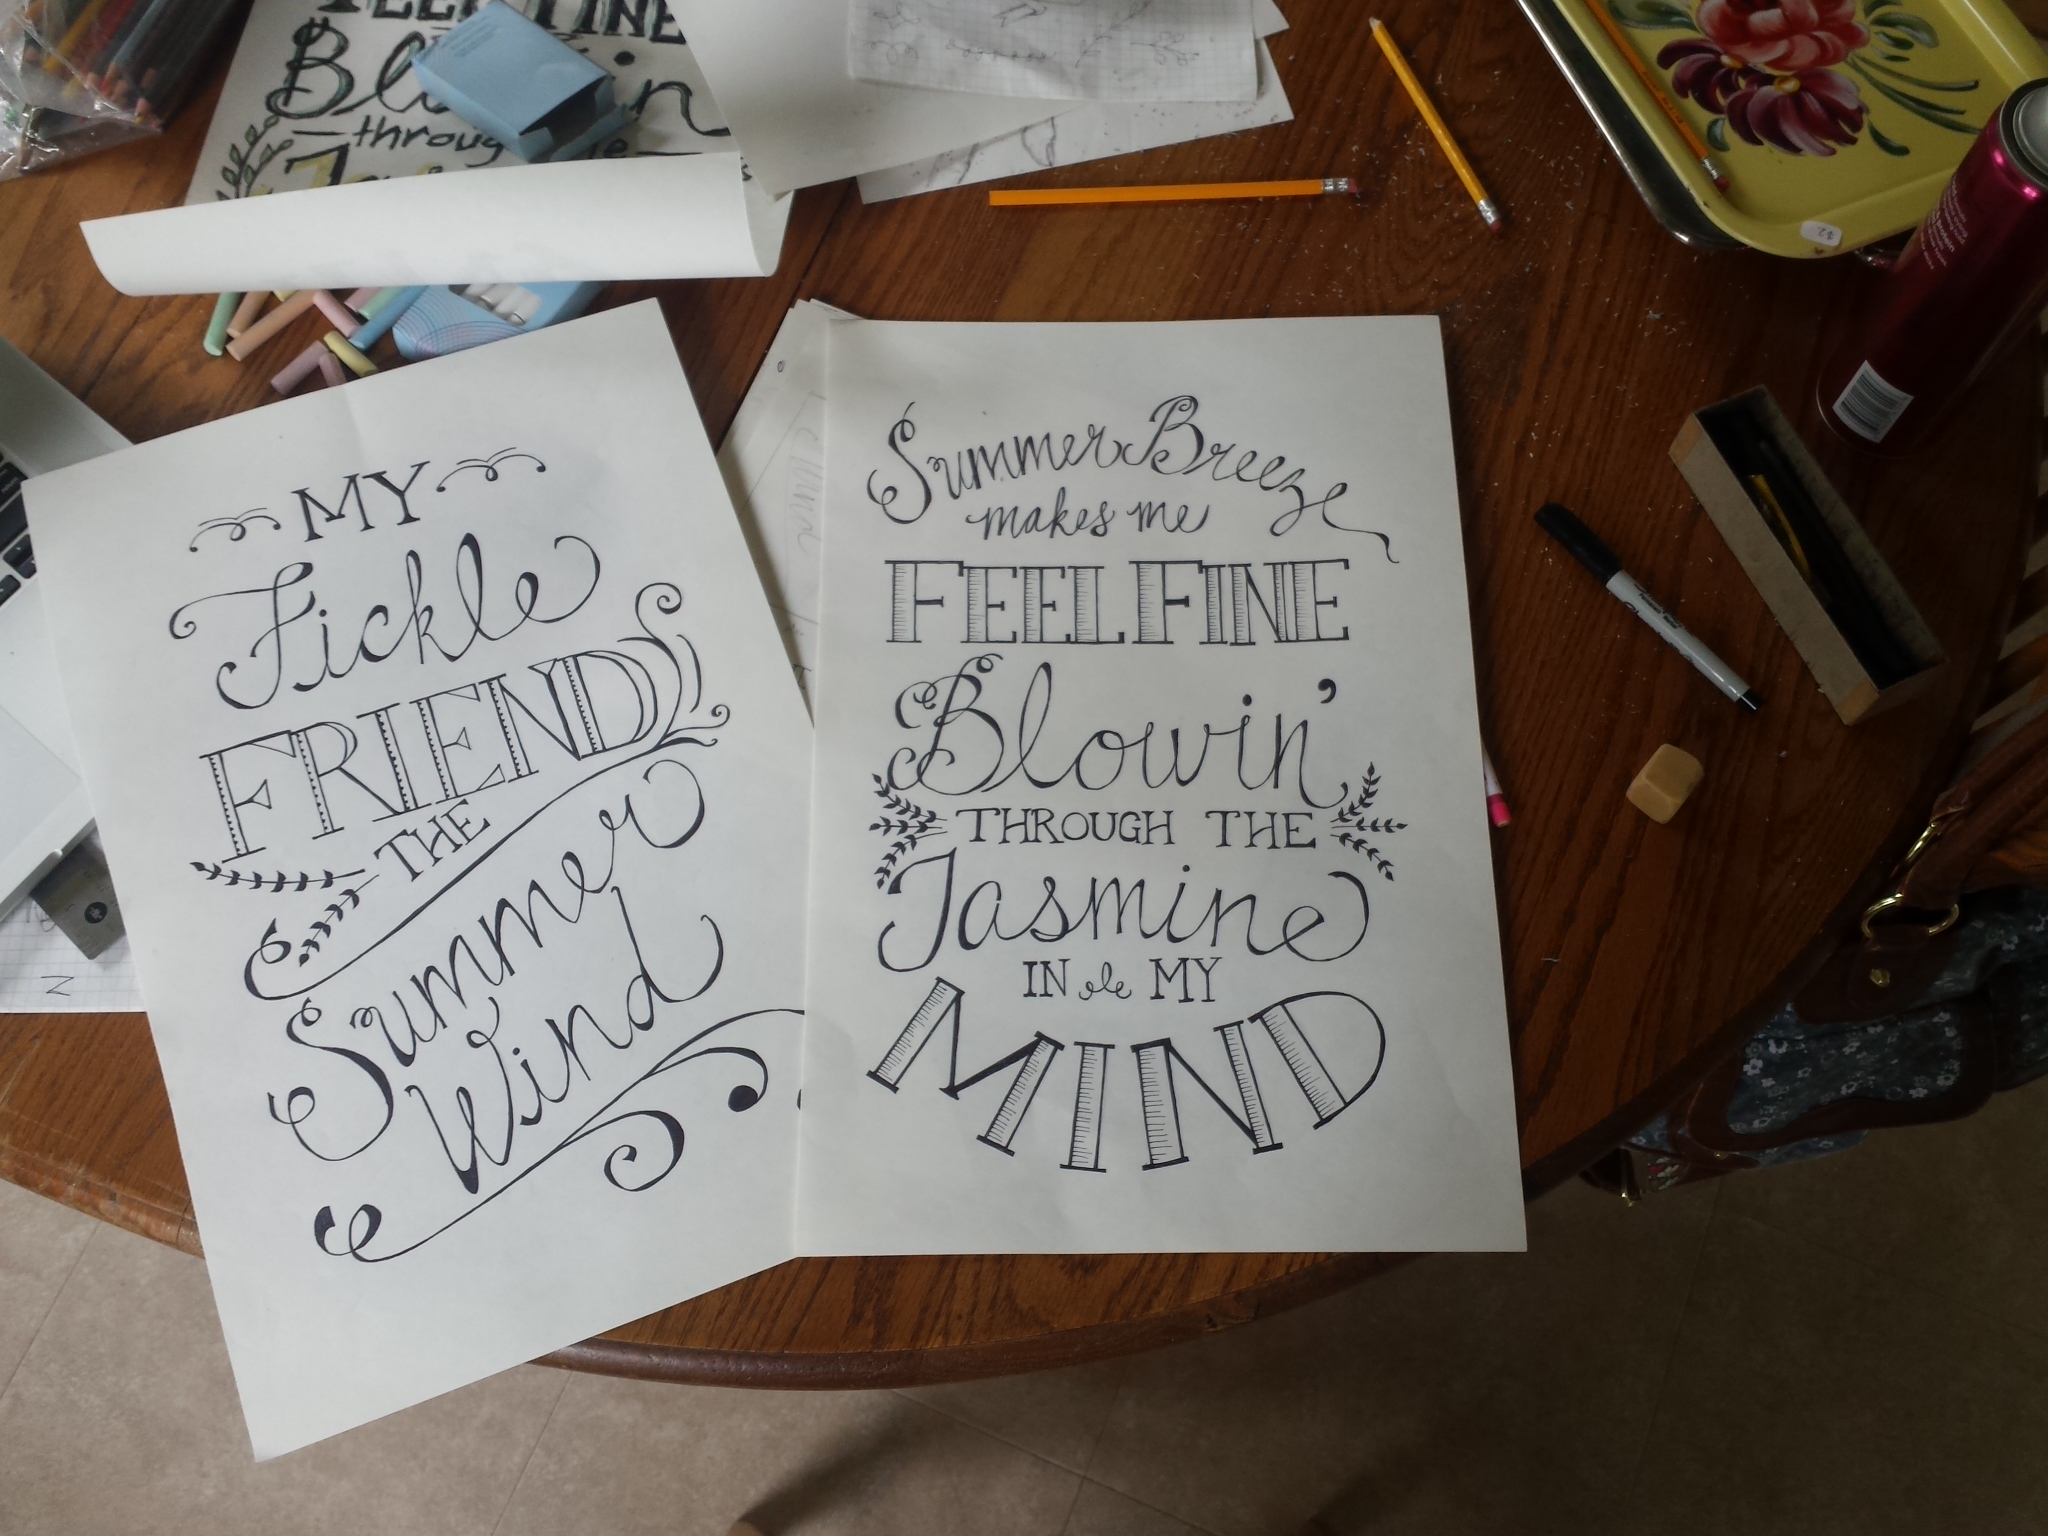 FEEL FINE
through
MY
Fickle
FRIEND
THE
Summer
Wind
Summer Breeze
makes me
FEEL FINE
Blowin'
THROUGH THE
Jasmine
IN MY
MIND